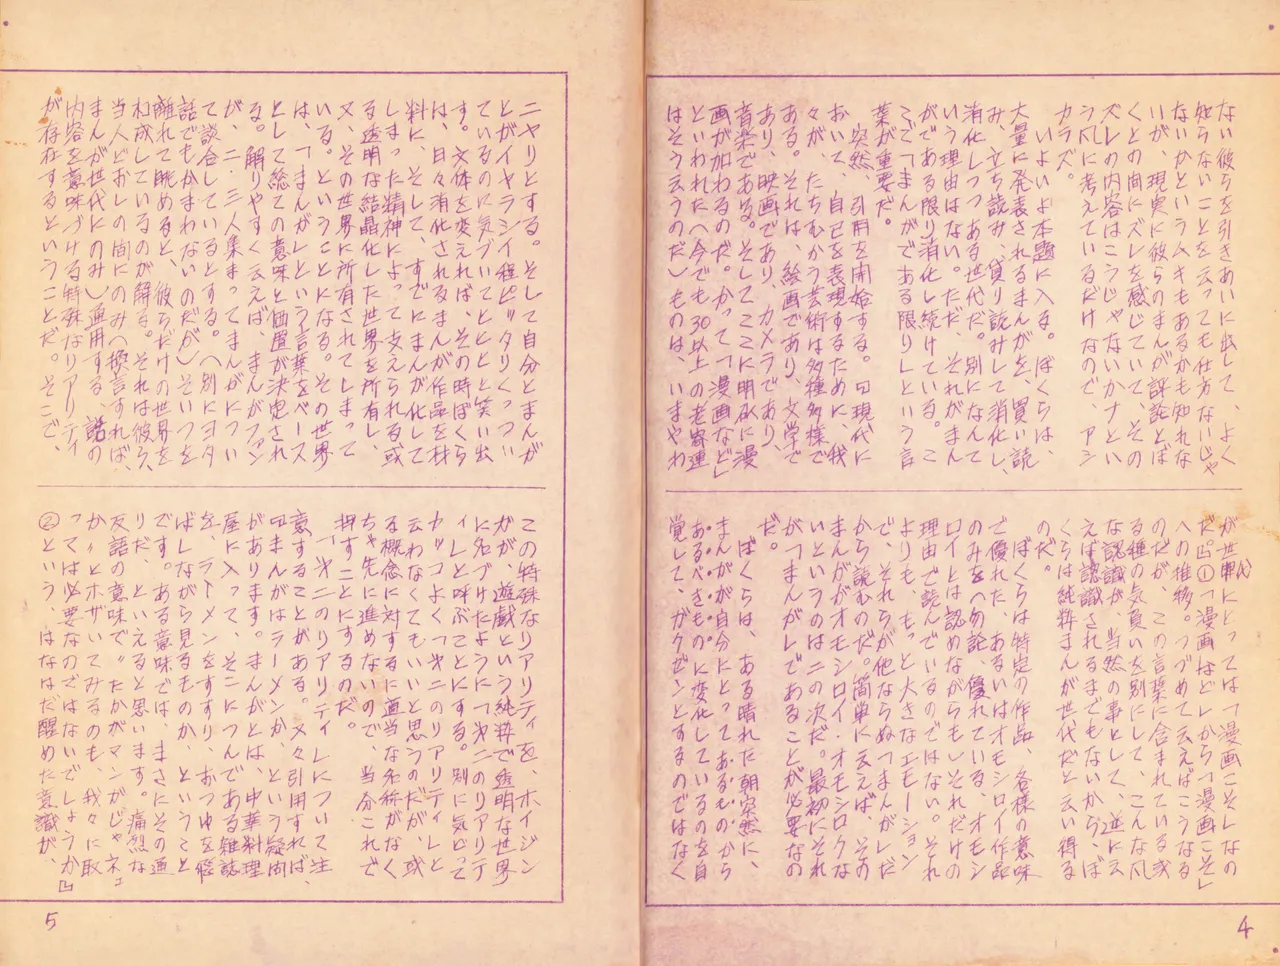 ない彼らを引きあいに出して、よく
知らないことを云っても仕方ないじゃ
ないかというムキもあるかも知れな
いが、現実に彼らのまんが評論とぼ
くとの間にズレを感じていて、その
ズレの内容はこうじゃないかナとい
う風に考えているだけなので、アシ
カラズ。
いよいよ本題に入る。ぼくらは、
大量に発表されるまんがを、買い読
み、立ち読み、貸り読みして消化し、
消化しつつある世代だ。別になんて
いう理由はない。ただ、それがまん
がである限り消化し続けている。こ
こで「まんがである限り」という言
葉が重要だ。
突然、引用を開始する。『現代に
おいて、自己を表現するために、我
々が、たちむかう芸術は多種多様で
ある。それは、絵画であり、文学で
あり、映画であり、カメラであり、
音楽である。そしてここに明確に漫
画が加わるのだ。かつて「漫画など」
といわれた(今でも30以上の老寄連
はそう云うのだ)ものは、いまやわ
が世代にとっては「漫画こそ」なの
だ。』①「漫画など」から「漫画こそ」
への推移。つづめて云えばこうなる
のだが、この言葉に含まれている或
る種の気負いを別にして、こんな風
な認識が、当然の事として、逆に云
えば認識されるまでもないから、ぼ
くらは純粋まんが世代だと云い得る
のだ。
ぼくらは特定の作品、各様の意味
で優れた、あるいはオモシロイ作品
のみを(勿論、優れている、オモシ
ロイとは認めながらも)それだけの
理由で読んでいるのではない。それ
よりも、もっと大きなエモーション
で、それらが他ならぬ「まんが」だ
から読むのだ。簡単に云えば、その
まんががオモシロイ・オモシロクな
いというのは二の次だ。最初にそれ
が「まんが」であることが必要なの
だ。
ぼくらは、ある晴れた朝突然に、
まんがが自分にとってあるものから
あるべきものに変化しているのを自
覚して、ガクゼンとするのではなく
ニヤリとする。そして自分とまんが
とがイヤラシイ程ピッタリくっつい
ているのに気づいてヒヒヒと笑い出
す。文体を変えれば、その時ぼくら
は、日々消化されるまんが作品を材
料に、そして、すでにまんが化して
しまった精神によって支えられる或
る透明な結晶化した世界を所有し、
又、その世界に所有されてしまって
いる。ということになる。その世界
は、「まんが」という言葉をベース
として総ての意味と価置が決定され
る。解りやすく云えば、まんがファン
が、二・三人集まってまんがについ
て談合しているとする。(別にヨタ
話でもかまわないのだが)そいつを
離れて眺めると、彼らだけの世界を
和成しているのが解る。それは彼ら、
当人どおしの間にのみ(換言すれば、
まんが世代にのみ)通用する、話の
内容を意味づける特殊なリアリティ
が存在するということだ。そこで、
この特殊なリアリティを、ホイジン
ガが、遊戯という純粋で透明な世界
に名づけたように「㐧二のリアリテ
ィ」と呼ぶことにする。別に気どって
カッコよく「㐧二のリアリティ」と
云わなくてもいいと思うのだが、或
る概念に対するに適当な名称がなく
ちゃ先に進めないので、当分これで
押すことにするのだ。
「㐧二のリアリティ」について注
意することがある。又々引用すれば、
『まんがはラーメンか、という疑問
があります。まんがとは、中華料理
屋に入って、そこにつんである雑誌
を、ラーメンをすすり、おつゆを飛
ばしながら見るものか、ということ
です。ある意味では、まさにその通
りだ、といえると思います。痛烈な
反語の意味で〝たかがマンガじゃネェ
か〟とホザいてみるのも、我々に取
っては必要なのではないでしょうか』
②という、はなはだ醒めた意識が、
5
4